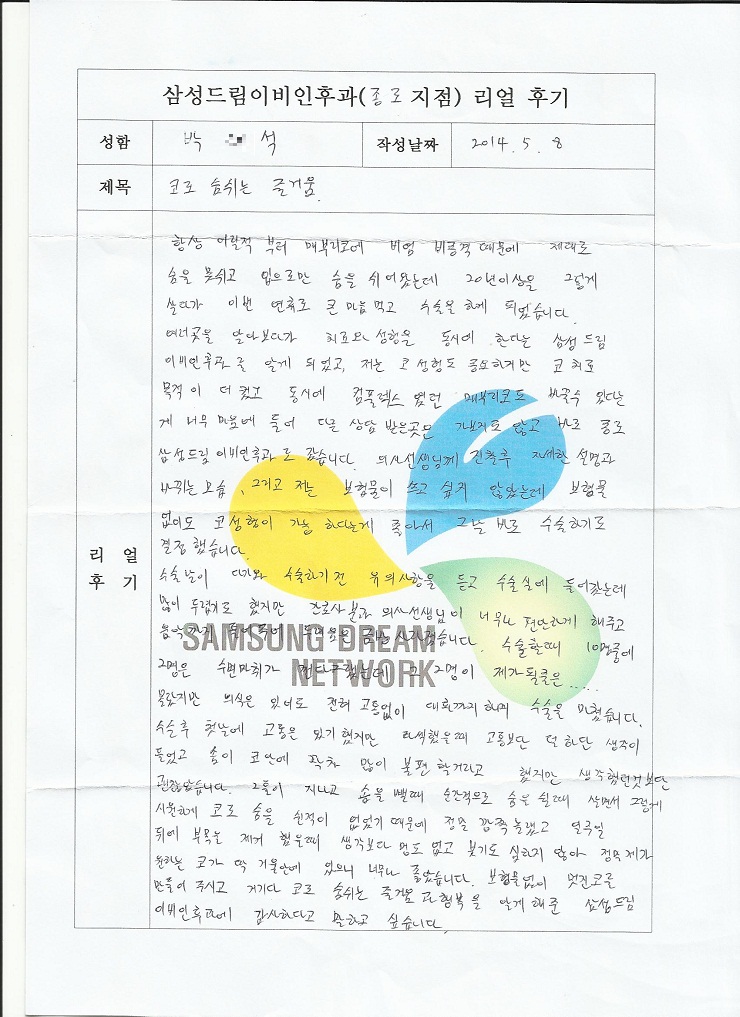 삼성드림이비인후과(종로 지점) 리얼 후기
성함 박 석 작성날짜 2014. 5. 8
제목 코로 숨쉬는 즐거움.
항상 어릴적 부터 매부리코에 비염 비중격 때문에 제대로
숨을 못쉬고 입으로만 숨을 쉬어왔는데 20년이상을 그렇게
살다가 이번 연휴로 큰 마음 먹고 수술을 하게 되었습니다.
여러곳을 알아보다가 치료와 성형을 동시에 한다는 삼성드림
이비인후과를 알게 되었고, 저는 코성형도 중요하지만 코 치료
목적이 더 컸고 동시에 컴플렉스 였던 매부리코도 바꿀수 있다는
게 너무 마음에 들어 다른 상담 받은곳은 가보지도 않고 바로 종로
삼성드림이비인후과로 갔습니다. 의사선생님께 진찰후 자세한 설명과
바뀌는 모습, 그리고 저는 보형물이 쓰고 싶지 않았는데 보형물
없이도 코성형이 가능 하다는게 좋아서 그날 바로 수술하기로
결정했습니다.
리 얼
후 기
수술날이 다가와 수술하기전 유의사항을 듣고 수술실에 들어갔는데
많이 두렵기도 했지만 간호사분과 의사선생님이 너무나 편안하게 해주고
음악까지 틀어주어 두려움은 금방 사라졌습니다. 수술할때 10명중에
2명은 수면마취가 그 2명이 제가 될줄은.....
몰랐지만 의식은 있어도 전혀 고통없이 대화까지 하며 수술을 마쳤습니다.
수술후 첫날에 고통은 있기 했지만 했을때 고통보단 덜 하단 생각이
들었고 솜이 코안에 꽉차 많이 불편 했지만 생각했던것보단
괜찮았습니다. 2틀이 지나고 솜을 뺄때 순간적으로 숨을 쉴때 살면서 그렇게
시원하게 코로 숨을 쉰적이 없었기 때문에 정말 깜짝 놀랐고 일주일
뒤에 부목을 제거 했을때 생각보다 멍도 없고 붓기도 심하지 않아 정말 제가
원하는 코가 딱 거울안에 있으니 너무나 좋았습니다. 보형물없이 멋진코를
만들어 주시고 거기다 코로 숨쉬는 즐거움과 행복을 알게 해준 삼성드림
이비인후과에 감사하다고 말하고 싶습니다.
SAMSUNG DREAM
NETWORK